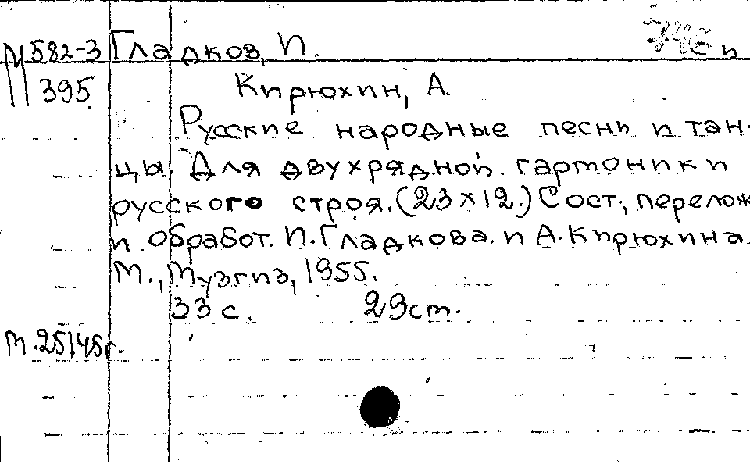 М582-3 Гладков, П.
395 Кирюхин, А
Русские народные песни и тан-
цы. Для двухрядной гармоники
русского строя. (23х12.) Сост., перелож
и обработ. П. Гладкова. и А. Кирюхина
М., Музгиз, 1955.
33 с. 29 см.
М.25145г.